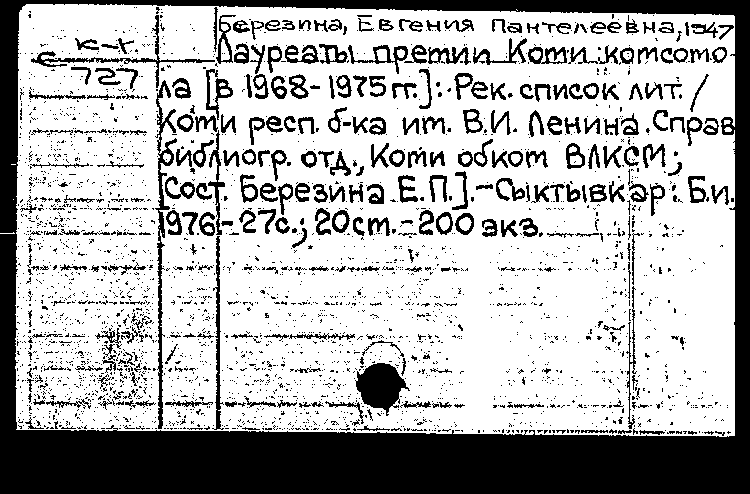 Березина, Евгения Пантелеевна, 1947
к-т
Лауреаты премии Коми комсомо-
С 727
ла [в 1968-1975 гг.]: Рек. список лит. /
Коми респ. б-ка им. В.И. Ленина. Справ
библиогр. отд., Коми обком ВЛКСМ;
[Сост. Березина Е.П.].-Сыктывкар: Б.и.,
1976.-27с.; 20см.-200 экз.